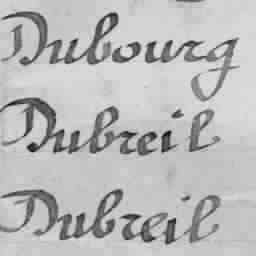 Dubourg
Dubreil
Dubreil